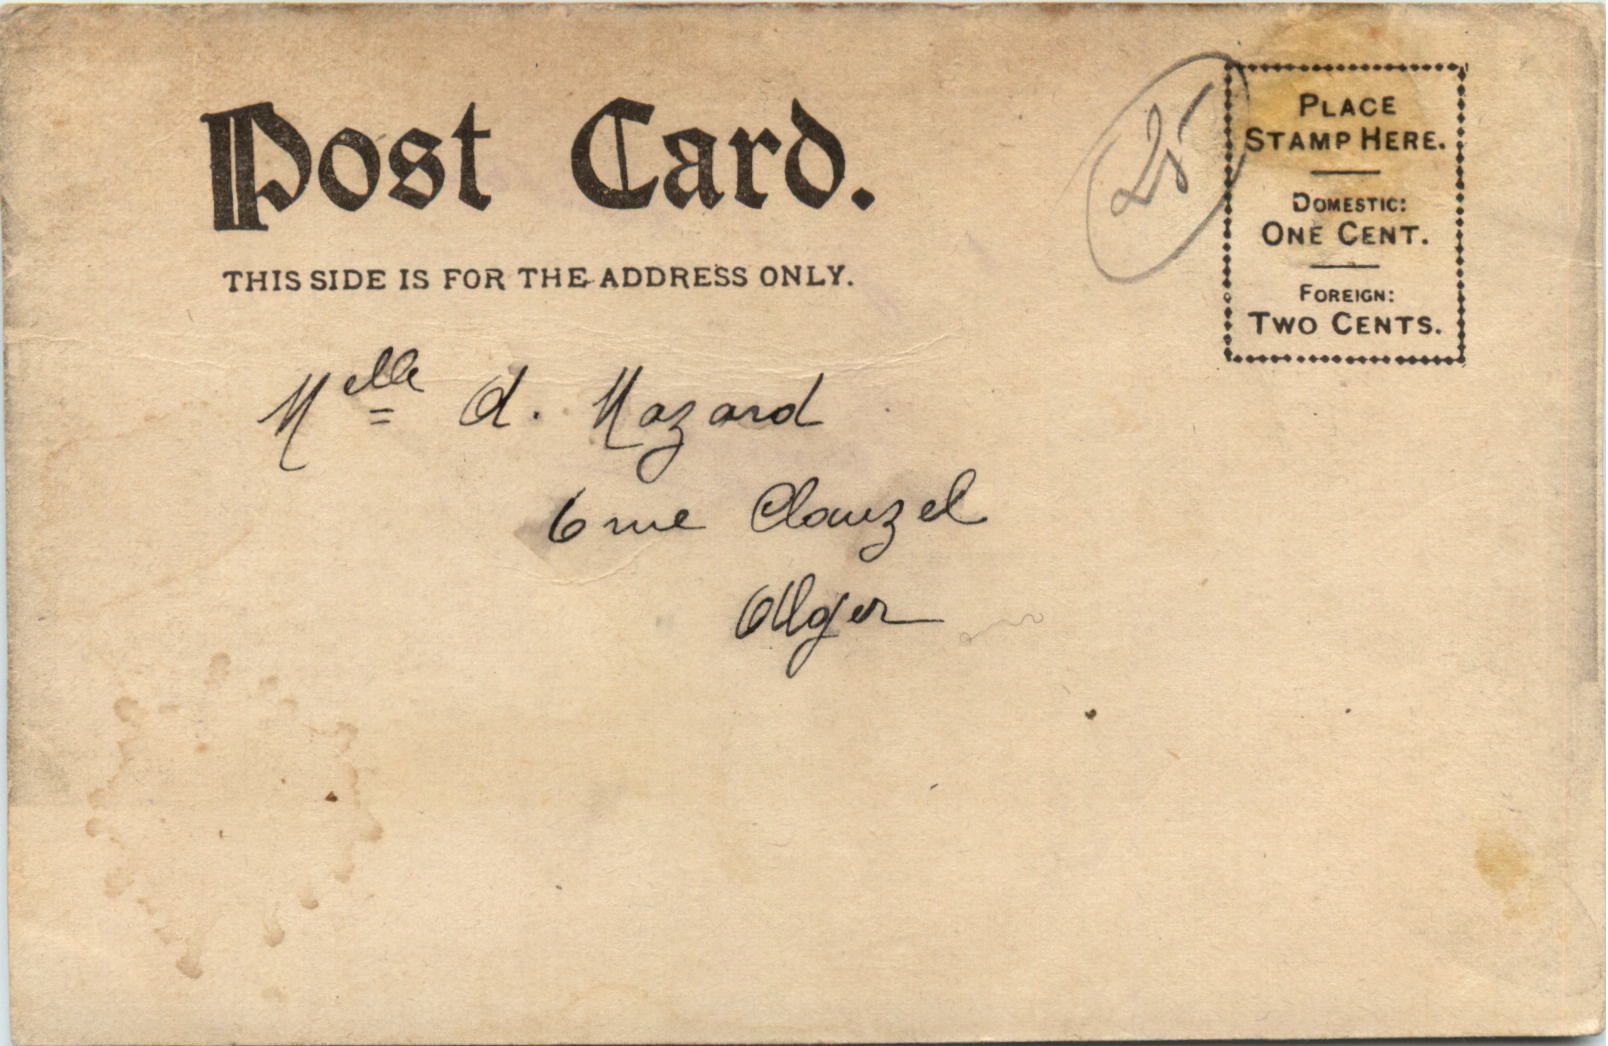 Post Card.
THIS SIDE IS FOR THE ADDRESS ONLY.
25
PLACE
STAMP HERE.
DOMESTIC:
ONE CENT.
FOREIGN:
TWO CENTS.
Melle A. Mazard
6 rue Clauzel
Alger